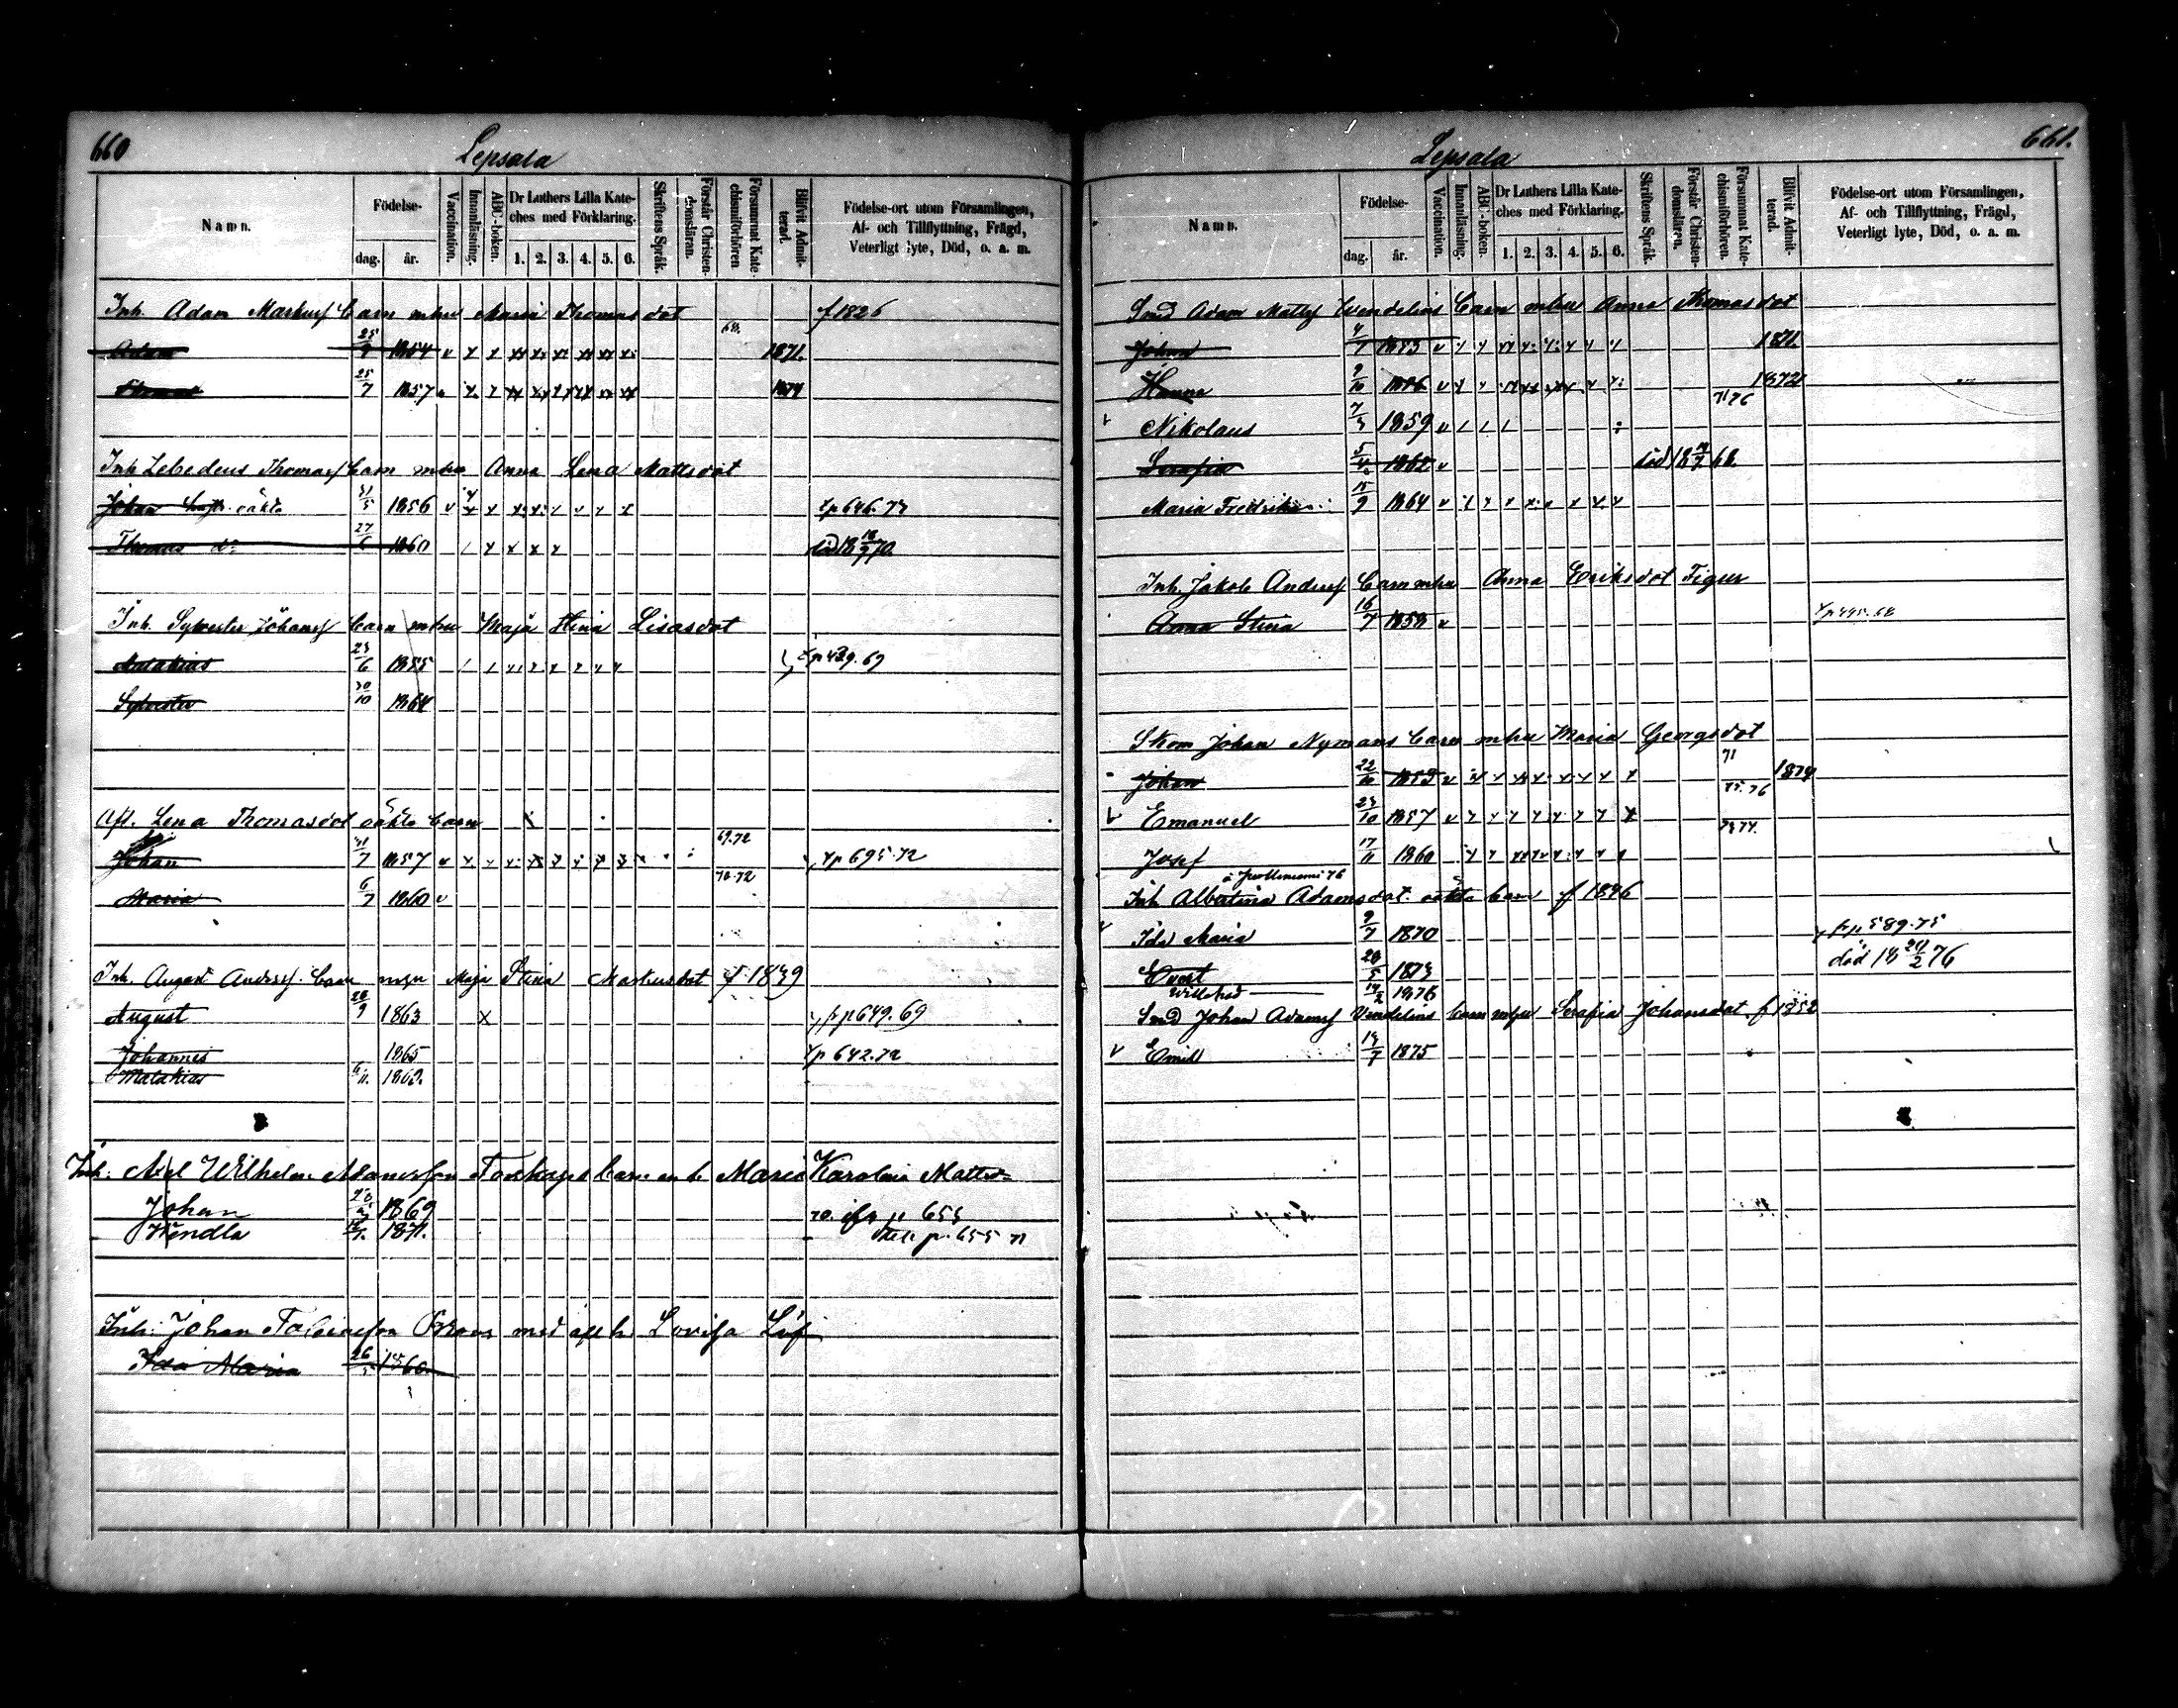 660
Lepsala
Namn.
Födelse-
dag.
år.
Vaccination.
Innanläsning.
ABC-boken.
Dr Luthers Lilla Kate-
ches med Förklaring.
1. 2. 3. 4. 5. 6.
Skriftens Språk.
Förstår Christen-
domsläran.
Försummat Kate-
chismiförhören
Blifvit Admit-
terad.
Födelse-ort utom Församlingen,
Af- och Tillflyttning, Frägd,
Veterligt lyte, Död, o. a. m.
Inh. Adam Markusf Barn mhu Maria Thomasdot f 1826
68.
Adam 25/9 1854 1871.
Thomas 25/7 1857 1874
Inh Zebedeus Thomasf Barn mhu Anna Lena Mattsdot
Johan oäkta 31/5 1856 646.73
Thomas do 27/6 1860 död 18 18/7 70
Inh. Sylvester Johansf Barn mhu Maja Stina Lisasdot
Malakias 23/6 1855 p 439.69
Sylvester 30/10 1864
Aft. Lena Thomasdot oäkta Barn
69.72
Johan 31/7 1857 p 695.72
70.72
Maria 6/7 1860
Inh. August Andersf. Barn mhu Maja Stina Markusdot f 1839
August 28/9 1863 p 649.69
Johannes 1865 p 642.72
Malakias 6/11. 1869.
Inh. Axel Wilhelm Adamsson Barn Maria Karolina Matts
Johan 20 1869 70. p 655
Wendla 1871. p. 655
Inh: Johan med Lovisa Löf
Ida Maria 26/5 1860
661.
Lepsala
Namn.
Födelse-
dag.
år.
Vaccination.
Innanläsning.
ABC-boken.
Dr Luthers Lilla Kate-
ches med Förklaring.
1. 2. 3. 4. 5. 6.
Skriftens Språk.
Förstår Christen-
domsläran.
Försummat Kate-
chismiförhören.
Blifvit Admit-
terad.
Födelse-ort utom Församlingen,
Af- och Tillflyttning, Frägd,
Veterligt lyte, Död, o. a. m.
Smd Adam Mattsf Wendelins Barn mhu Anna Thomasdot
Johan 4/7 1853 1871.
Hanna 9/10 1856 1872
71 76
Nikolaus 7/3 1859
Serafia 1862 död 18 68.
Maria Fredrika 15/9 1864
Inh. Jakob Andersf Barn mhu Anna Eriksdot Figur
Anna Stina 16/7 1858 p 495.68
Skom Johan Nymans Barn mhu Maria Georgsdot
71
Johan 22/10 1853 1874
75.76
Emanuel 23/10 1857
Josef 17/11 1860
Inh Albertina Adamsdot. oäkta barn f 1846
Ida Maria 9/7 1870 p 589.75
Evert 28/5 1873 död 18 20/2 76
Willehad 14/2 1876
Smd Johan Adamsf Vendelins barn mhu Serafia Johansdot. f 1852
Emil 14/7 1875